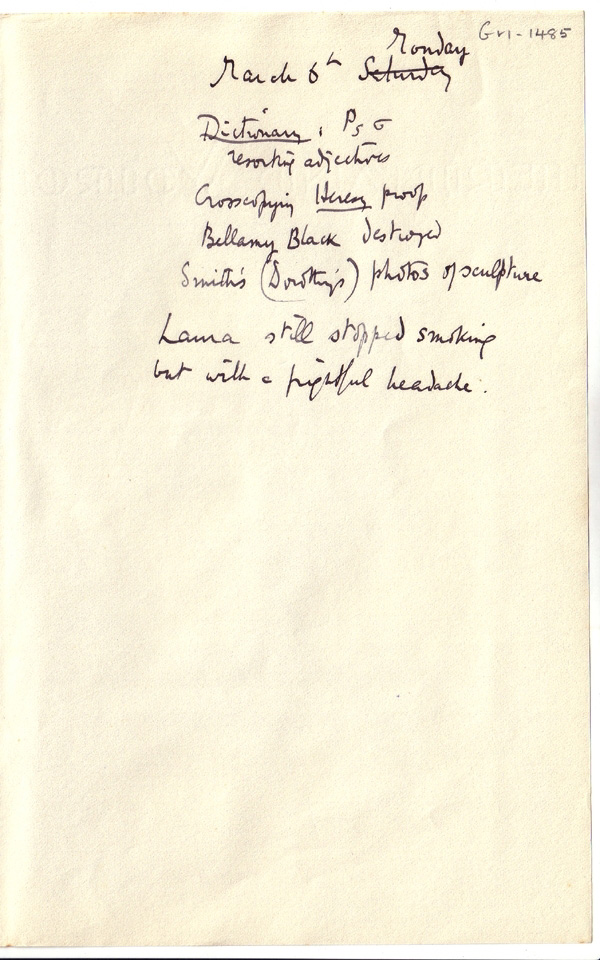 Gr1-1485
Monday
March 6th Saturday
Dictionary : P 5 σ
resorting adjectives
Crosscopying Heresy proof
Bellamy Black destroyed
Smith's (Dorothy's) photos of sculpture
Laura still stopped smoking
but with a frightful headache.